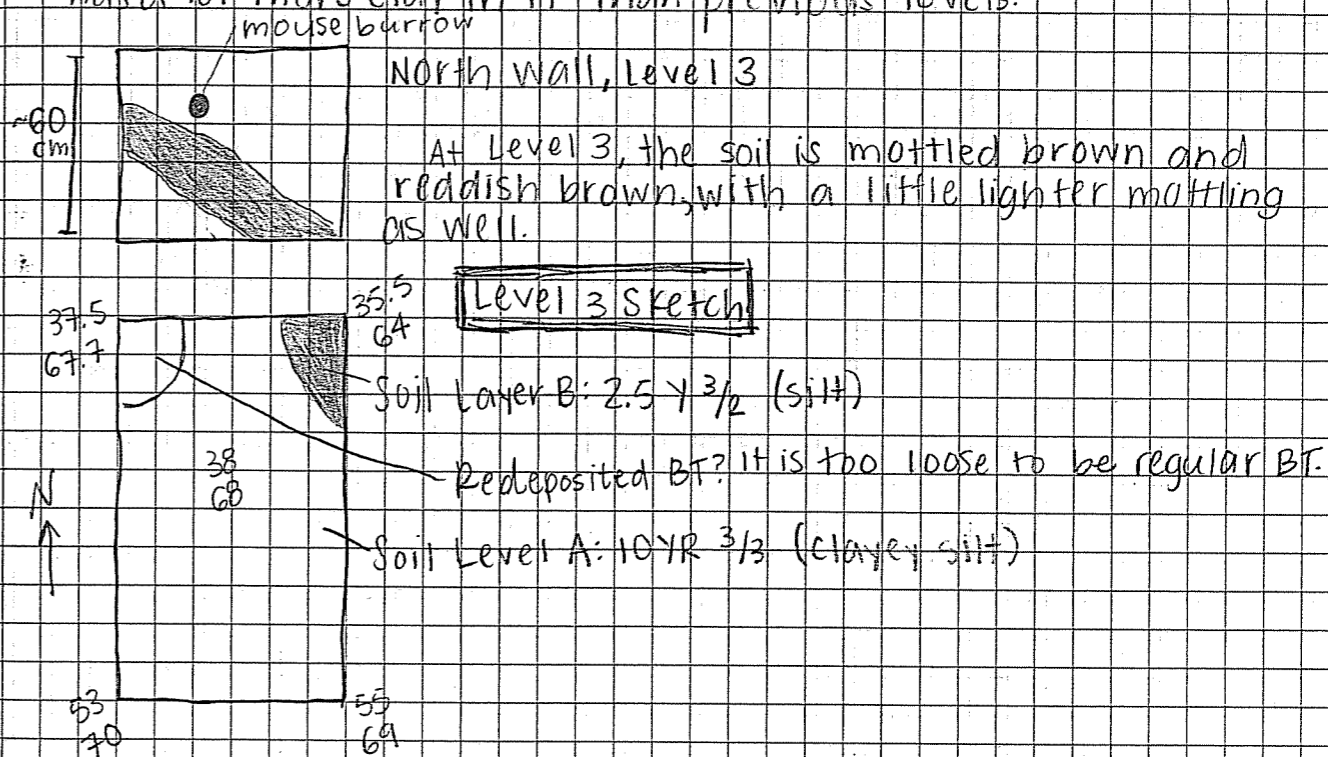 than previous levels.
mouse burrow
North Wall, Level 3
~60
cm
At Level 3, the soil is mottled brown and
reddish brown, with a little lighter mottling
as well.
Level 3 Sketch
37.5
67.7
35.5
64
Soil Layer B: 2.5 Y 3/2 (silt)
38
68
Redeposited BT? It is too loose to be regular BT.
N
Soil Level A: 10YR 3/3 (clayey silt)
53
70
55
69